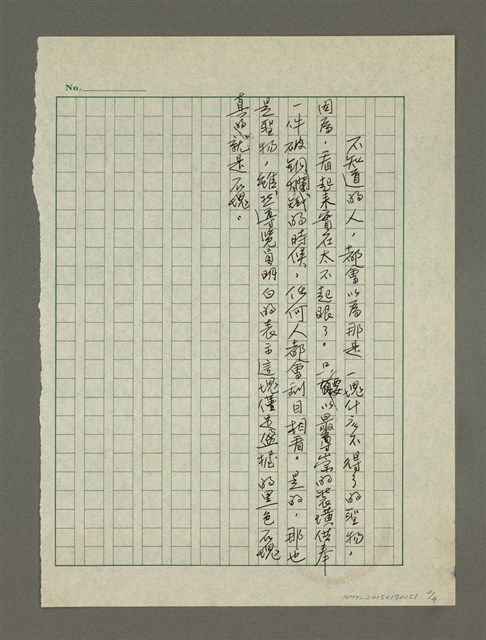 No.
不知道的人，都會以為那是一塊什麼不得了的聖物，
因為，看起來實在太不起眼了。只要以最尊崇的裝璜供奉
一件破銅爛鐵的時候，任何人都會刮目相看。是的，那也
是聖物，雖然導覽員明白的表示這塊僅是盈握的黑色石塊
真的就是石塊。
NMTL20150190151 2/4